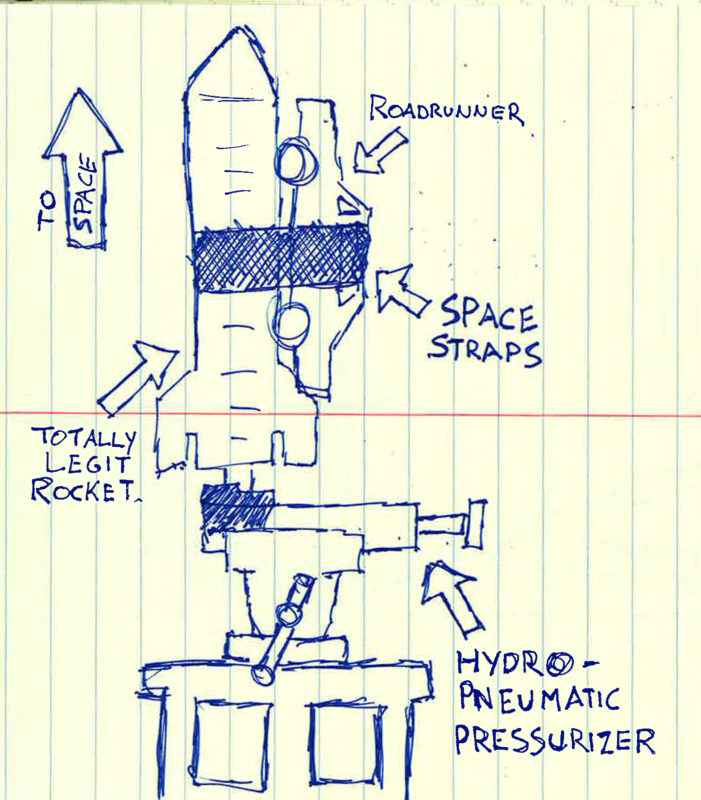 ROADRUNNER
TO
SPACE
SPACE
STRAPS
TOTALLY
LEGIT
ROCKET.
HYDRO-
PNEUMATIC
PRESSURIZER